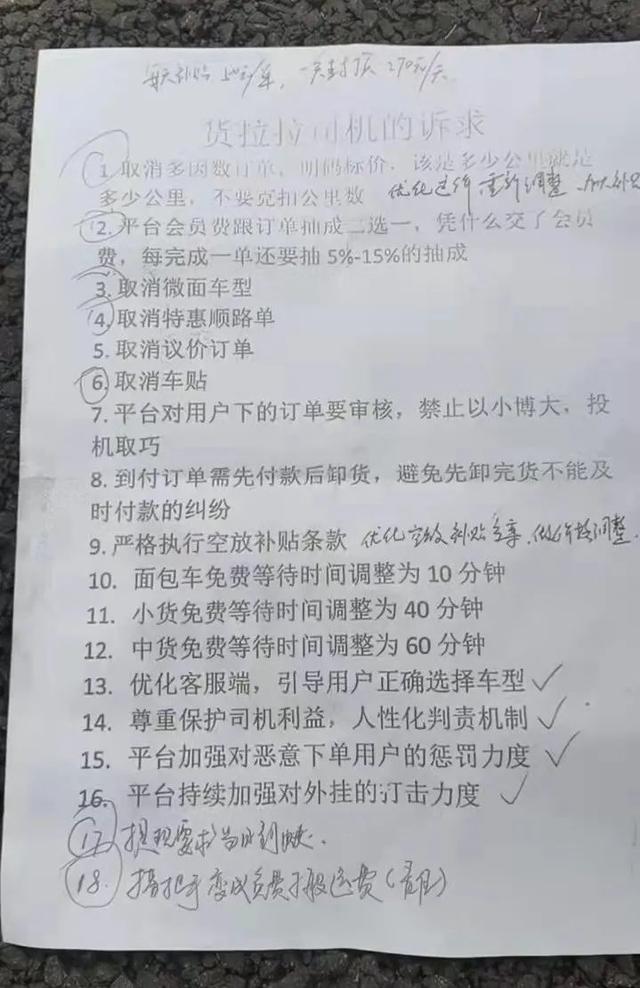 每天补贴50元/单，一天封顶270元/天
货拉拉司机的诉求
1. 取消多因数订单，明码标价，该是多少公里就是
多少公里，不要克扣公里数 优化运价 重新调整
2. 平台会员费跟订单抽成二选一，凭什么交了会员
费，每完成一单还要抽 5%-15%的抽成
3. 取消微面车型
4. 取消特惠顺路单
5. 取消议价订单
6. 取消车贴
7. 平台对用户下的订单要审核，禁止以小博大，投
机取巧
8. 到付订单需先付款后卸货，避免先卸完货不能及
时付款的纠纷
9. 严格执行空放补贴条款 优化空放补贴 调整
10. 面包车免费等待时间调整为 10 分钟
11. 小货免费等待时间调整为 40 分钟
12. 中货免费等待时间调整为 60 分钟
13. 优化客服端，引导用户正确选择车型
14. 尊重保护司机利益，人性化判责机制
15. 平台加强对恶意下单用户的惩罚力度
16. 平台持续加强对外挂的打击力度
17. 提现要求当日到账.
18. 变成免费搬运费